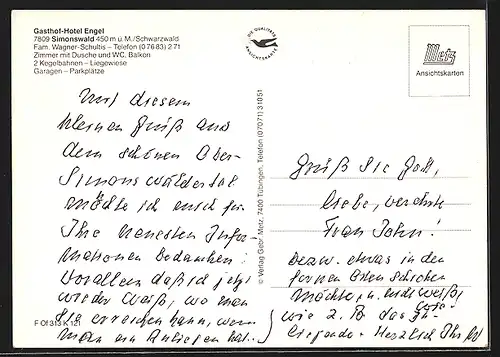 Gasthof-Hotel Engel
7809 Simonswald 450 m ü. M./Schwarzwald
Fam. Wagner-Schultis – Telefon (0 76 83) 2 71
Zimmer mit Dusche und WC, Balkon
2 Kegelbahnen – Liegewiese
Garagen – Parkplätze
DIE QUALITÄTS ANSICHTSKARTE
Metz
Ansichtskarten
© Verlag Gebr. Metz, 7400 Tübingen, Telefon (07071) 31051
Mit diesem
kleinen Gruß aus
dem schönen Ober-
Simonswäldertal
möchte ich mich für
Ihre neuesten Infor-
mationen bedanken!
Vorallem daß ich jetzt
wieder weiß, wo man
Sie erreichen kann, wenn
man ein Anliegen hat.
Grüß Sie Gott,
liebe, verehrte
Frau John!
Bzw. etwas in den
fernen Osten schicken
möchte, u. auch weiß,
wie z. B. das
Herzlich Ihr
F Of 313 K 121